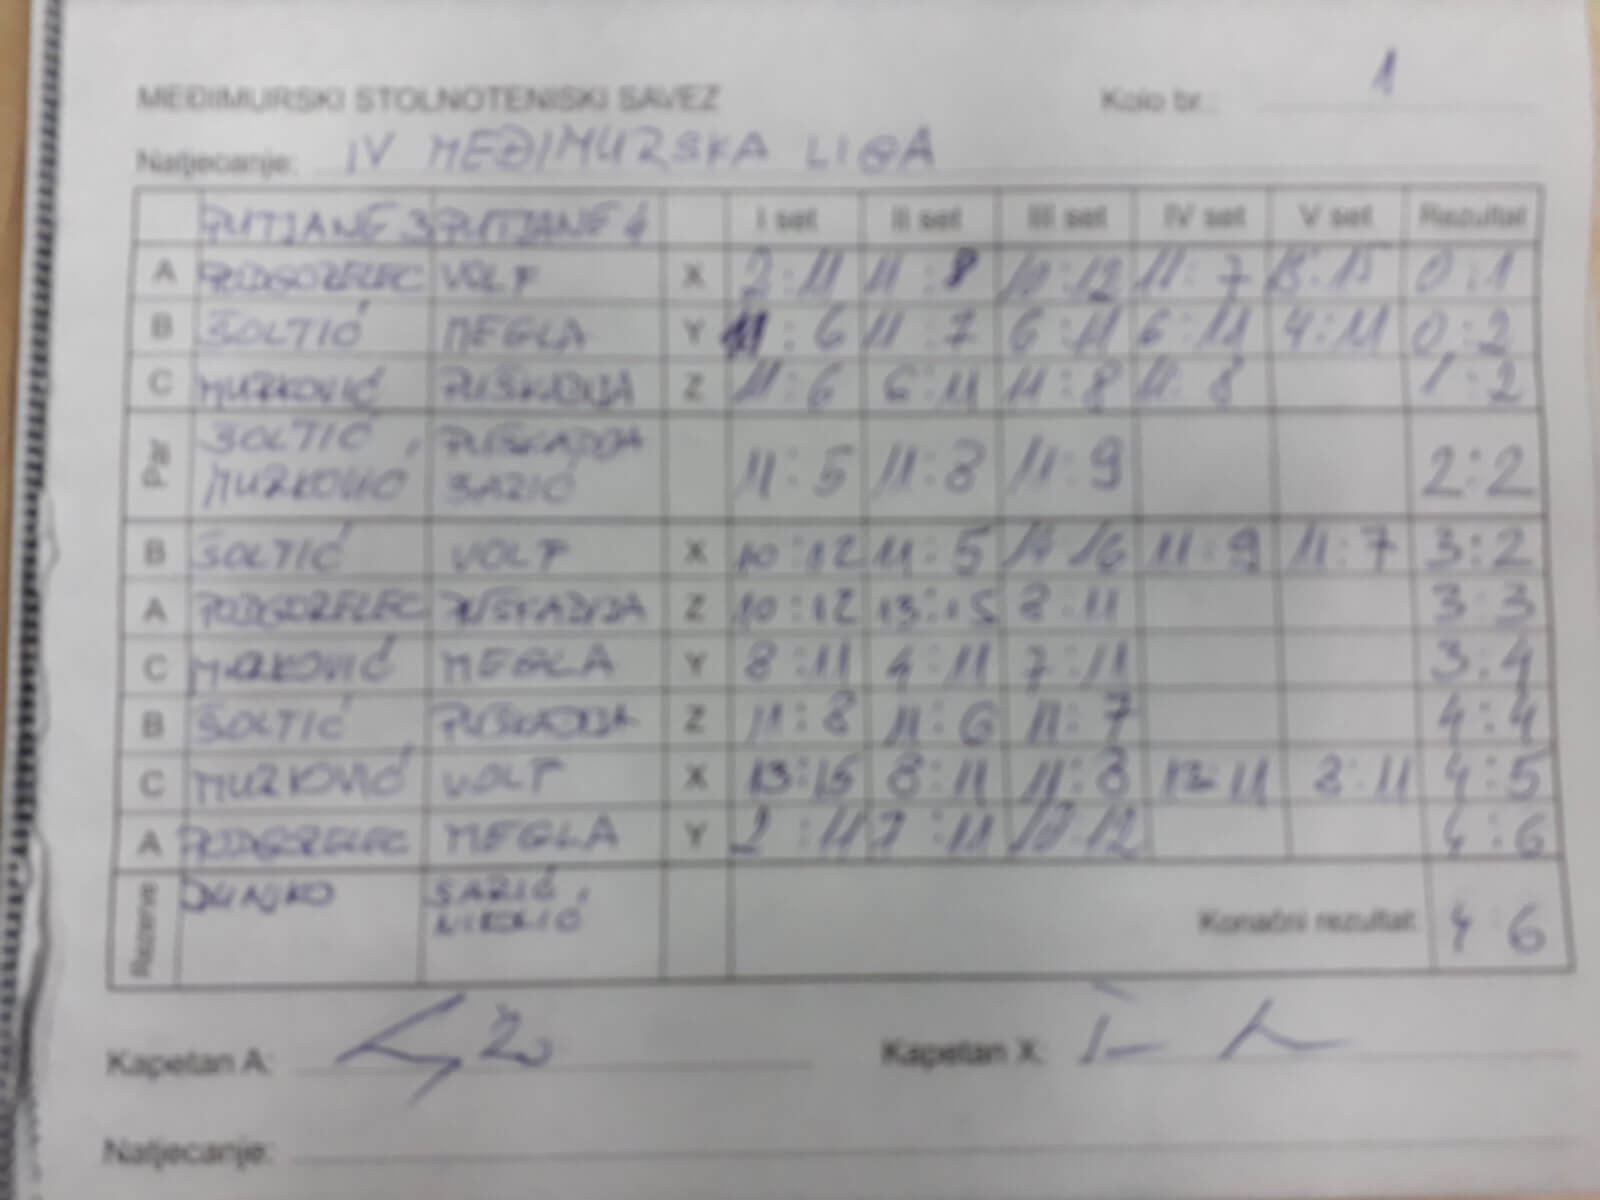 MEĐIMURSKI STOLNOTENISKI SAVEZ Kolo br.: 1
Natjecanje: IV MEĐIMURSKA LIGA
PUTJANE 3 PUTJANE 4 I set II set III set IV set V set Rezultat
A PODGORELEC VOLF X 2:11 11:8 10:12 11:7 13:15 0:1
B ŠOLTIĆ MEGLA Y 11:6 11:7 6:11 6:11 4:11 0:2
C MURKOVIĆ PUŠKADIJA Z 11:6 6:11 11:8 11:8 1:2
Par ŠOLTIĆ, MURKOVIĆ PUŠKADIJA SAZIĆ 11:5 11:8 11:9 2:2
B ŠOLTIĆ VOLF X 10:12 11:5 14 16 11:9 11:7 3:2
A PODGORELEC PUŠKADIJA Z 10:12 13:15 8:11 3:3
C MURKOVIĆ MEGLA Y 8:11 4:11 7:11 3:4
B ŠOLTIĆ PUŠKADIJA Z 11:8 11:6 11:7 4:4
C MURKOVIĆ VOLF X 13:15 8:11 11:8 13:11 8:11 4:5
A PODGORELEC MEGLA Y 2:11 7:11 10:12 4:6
Rezerve DUNJKO Konačni rezultat: 4:6
Kapetan A: Kapetan X:
Natjecanje: